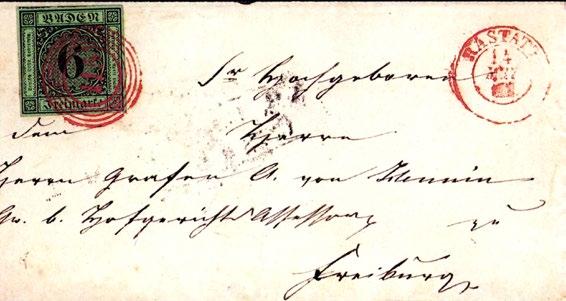 BADEN
6
Freimarke
RASTATT
14
Sr Hochgeboren
dem Herrn
Herrn Grafen A. von
Gr. b. Hofgerichts Assessor zu
Freiburg